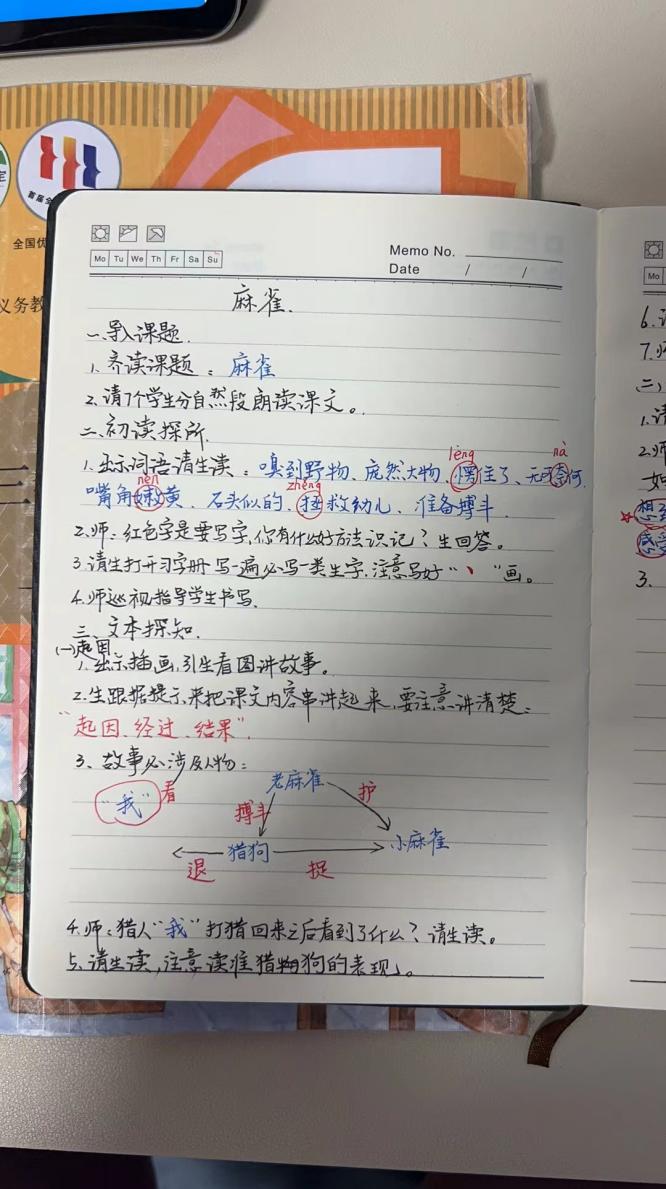 首届全
全国优
义务教
Mo Tu We Th Fr Sa Su
Memo No.
Date / /
麻雀.
一.导入课题.
1.齐读课题:麻雀
2.请7个学生分自然段朗读课文。
二.初读探所.
lèng nà
1.出示词语请生读:嗅到野物、庞然大物、愣住了、无可奈何.
nèn zhěng
嘴角嫩黄、石头似的、拯救幼儿、准备搏斗.
2.师:红色字是要写字,你有什么好方法识记?生回答。
3.请生打开习字册 写一遍必写一类生字,注意写好“丶”画。
4.师巡视指导学生书写.
三、文本探知.
(一)起因
1.出示插画,引生看图讲故事。
2.生跟据提示来把课文内容串讲起来,要注意讲清楚:
“起因、经过、结果”.
3、故事必涉及人物:
“我” 看 老麻雀 护
搏斗
猎狗 小麻雀
退 捉
4.师:猎人“我”打猎回来之后看到了什么?请生读。
5.请生读,注意读准猎狗的表现」。
6.
7.师
(二)
1.请
2.师
如
感受
3.